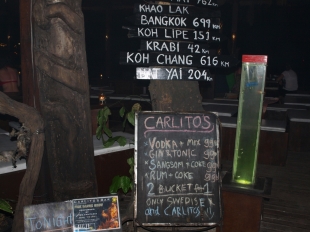 762 KM
KHAO LAK
BANGKOK 699 KM
KOH LIPE 153 KM
KRABI 42 KM
KOH CHANG 616 KM
HAT YAI 204 KM
CARLITO'S
VODKA + MIX 99
GIN & TONIC 99
SANGSOM + COKE 99
RUM + COKE 99
2 BUCKET for 1
ONLY SWEDISH
and CARLITOS !!
TONIGHT